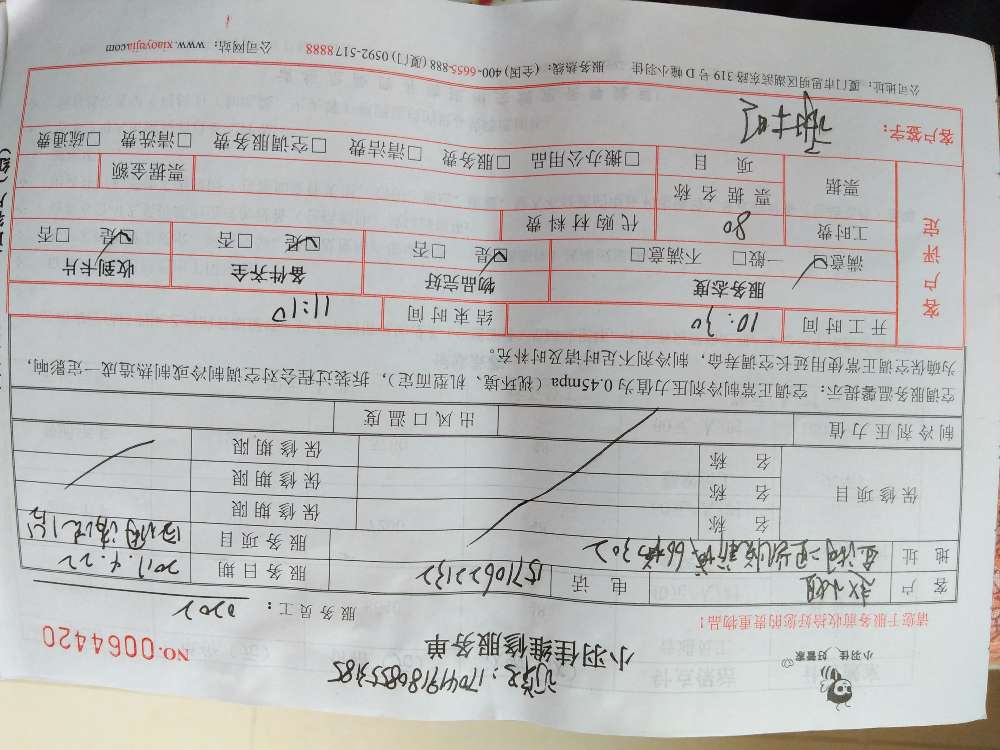 小羽佳 好管家
小羽佳维修服务单
NO.0064420
请您于服务前收拾好您的贵重物品！
服务员工：0202
客户
电话 15710622132
服务日期 2017.4.22
地址
服务项目 空调清洗1台
保修项目
名称 保修期限
名称 保修期限
名称 保修期限
制冷剂压力值 出风口温度
空调服务温馨提示：空调正常制冷剂压力值为0.45mpa（视环境、机型而定），拆装过程会对空调制冷或制热造成一定影响，
为确保空调正常使用延长空调寿命，制冷剂不足时请及时补充。
客户评定
开工时间 10:30 结束时间 11:10
服务态度 物品完好 备件齐全 收到卡片
☑满意 □一般 □不满意 ☑是 □否 ☑是 □否 ☑是 □否
工时费 80 代购材料费
票据 票据名称 票据金额
项目 □搬办公用品 □服务费 □清洁费 □空调服务费 □清洗费 □疏通费
客户签字：
公司地址：厦门市思明区湖滨东路319号D幢小羽佳 服务热线：(全国)400-6655-888 (厦门) 0592-5178888 公司网站：www.xiaoyujia.com